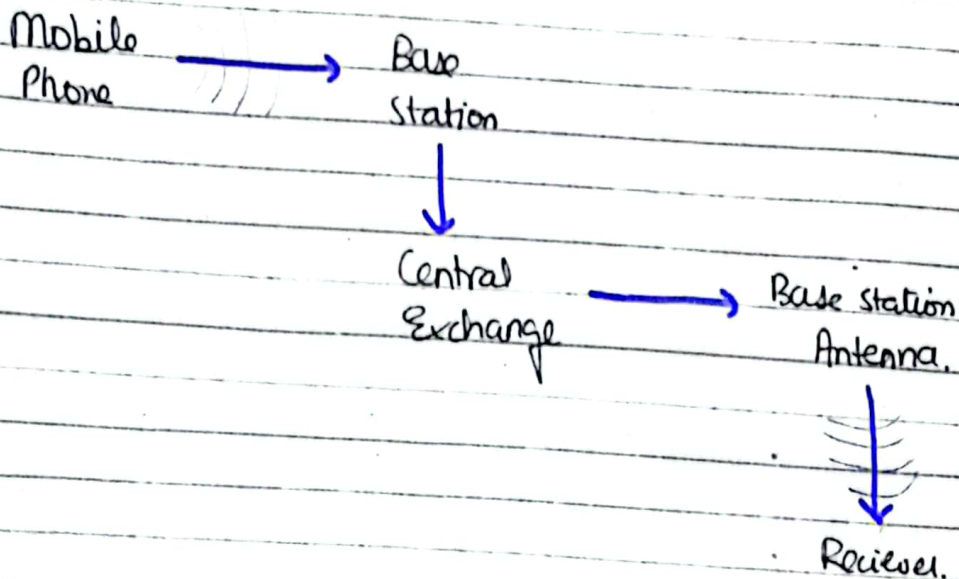 Mobile
Phone
Base
Station
Central
Exchange
Base station
Antenna.
Reciever.